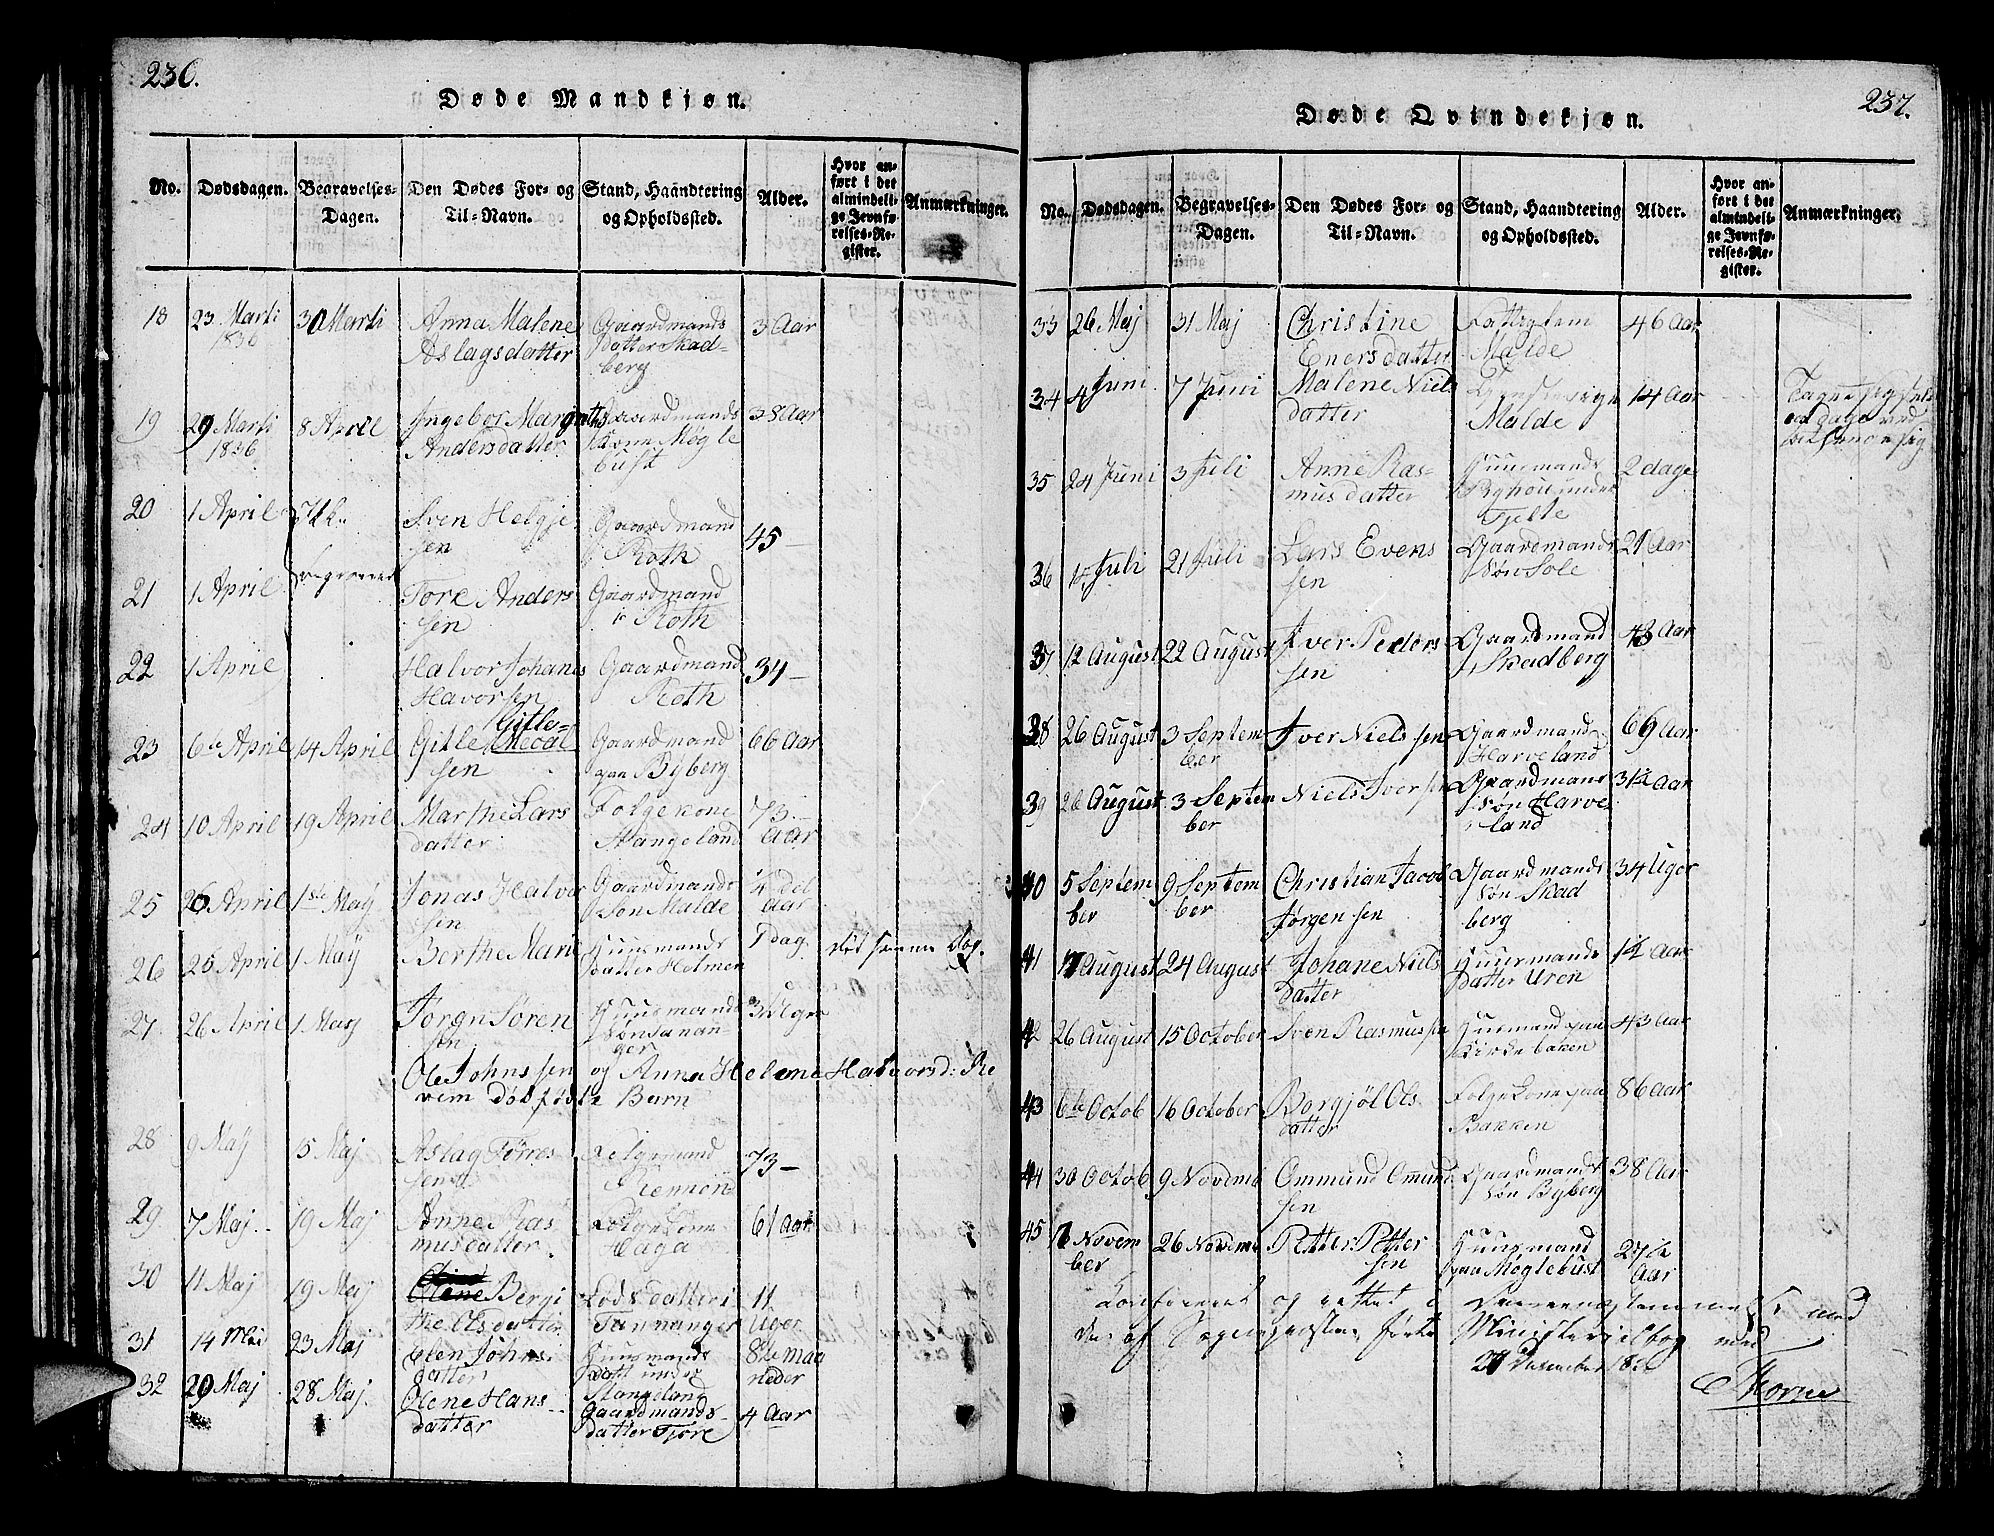 236.
Døde Mandkjøn.
No. Dødsdagen. Begravelses-Dagen. Den Dødes For- og Til-Navn. Stand, Haandtering og Opholdssted. Alder. Hvor anført i det almindelige Jevnførelses-Register. Anmærkninger.
18 23 Marti 1836 30 Marti Anna Malene Aslagsdatter Gaardmands Datter Skadberg 3 Aar
19 29 Marti 1836 8 April Ingebor Margrethe Andersdatter Gaardmands Kone Møglebust 38 Aar
20 1 April Sven Helgjesen Gaardmand Roth 45 —
21 1 April Tore Anderssen Gaardmand Roth
22 1 April Halvor Johanes Havorsen Gaardmand Roth 34 —
23 6te April 14 April Gitle Gitlesen Gaardmand paa Byberg 66 Aar
24 10 April 19 April Marthe Larsdatter Folgekone Stangeland 73 — Aar
25 26 April 1ste May Jonas Halvorsen Gaardmands Søn Malde Aar
26 25 April 1 May Berthe Marie Huusmands datter Holmen 1 Dag. død samme dag.
27. 26 April 1 May Jørgn Sørensen Huusmands Søn Tananger 3 Uger
Ole Johnssen og Anna Helene Halvorsd: Revem dødfødte Barn
28 9 May 15 Maj Aslag Torressen Folgemand Rennon 73 —
29 7 Maj 19 Maj Anne Rasmusdatter Folgekone Haga 61 Aar
30 11 Maj 19 Maj Bergithe Elsdatter Lods datter i Tannanger 11 Uger
31 14 Mai 23 Maj Elen Johnsdatter Huusmands Stangeland 8 maaneder
32 29 Maj 28 Maj. Olene Hansdatter Gaardmands datter Tjore 4 Aar
237.
Døde Qvindekjøn.
No. Dødsdagen. Begravelses-Dagen. Den Dødes For- og Til-Navn. Stand, Haandtering og Opholdssted. Alder. Hvor anført i det almindelige Jevnførelses-Register. Anmærkninger.
33 26 Maj 31 Maj Christine Enersdatter Fattiglem Malde 46 Aar
34 4 Juni 7 Juni Malene Nielsdatter Malde 14 Aar
35 24 Juni 3 Juli Anne Rasmusdatter Huusmands under Tjelte 2 dage
36 15 Juli 21 Juli Lars Evenssen Gaardmands Søn Sole 21 Aar
37 12 August 22 August Iver Pederssen Gaardmand Skadberg 43 Aar
38 26 August 3 September Iver Nielssen Gaardmand Harveland 69 Aar
39 26 August 3 September Niels Iversen Gaardmand Søn Harveland 3½ Aar
40 5 September 9 September Christian Jacob Jørgensen Gaardmands Søn Skadberg 34 Uger
41 17 August 24 August Johane Nielsdatter Huusmands Datter Uren 14 Aar
42 26 August 15 October Sven Rasmussen Huusmand paa 43 Aar
43 6te Octob 16 October Borgjøl Olsdatter Folgekone paa Bakken 86 Aar
44 30 Octob 9 Novemb Ommund Omundsen Gaardmands Søn Byberg 38 Aar
45 November 26 Novemb Petter Pettersen Huusmand paa Møglebust 27½ Aar
og rettet i Overeensstemmelse med
den af Sognepresten førte Ministerialbog
27 December